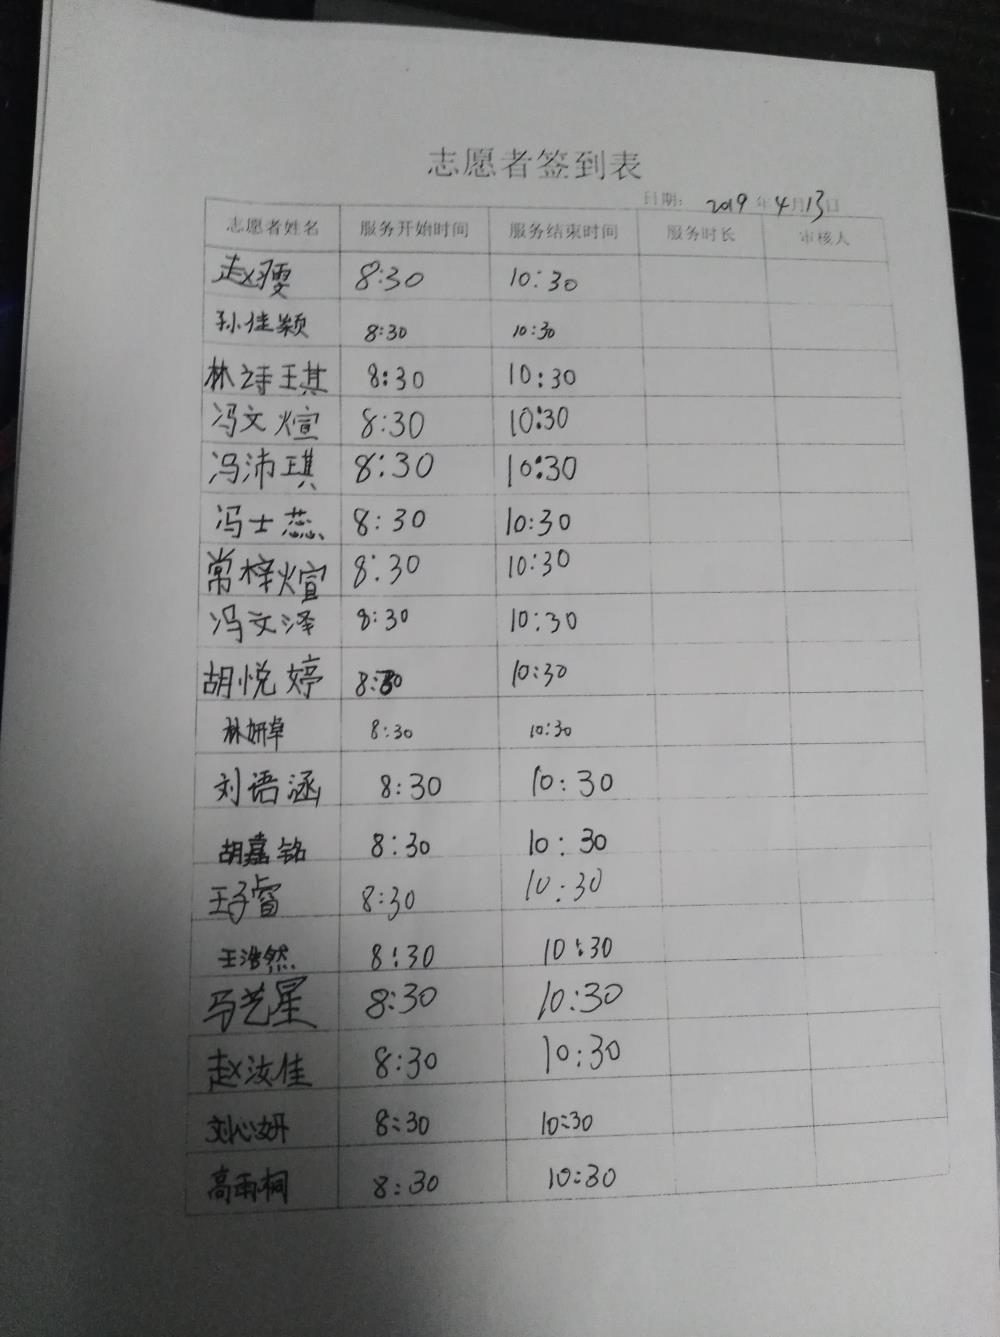 志愿者签到表
日期: 2019年4月13日
志愿者姓名 服务开始时间 服务结束时间 服务时长 审核人
赵雯 8:30 10:30
孙佳颖 8:30 10:30
林诗琪 8:30 10:30
冯文煊 8:30 10:30
冯沛琪 8:30 10:30
冯士蕊 8:30 10:30
常梓煊 8:30 10:30
冯文泽 8:30 10:30
胡悦婷 8:30 10:30
林妍卓 8:30 10:30
刘语涵 8:30 10:30
胡嘉铭 8:30 10:30
王子睿 8:30 10:30
王浩然 8:30 10:30
马艺星 8:30 10:30
赵汝佳 8:30 10:30
刘心妍 8:30 10:30
高雨桐 8:30 10:30